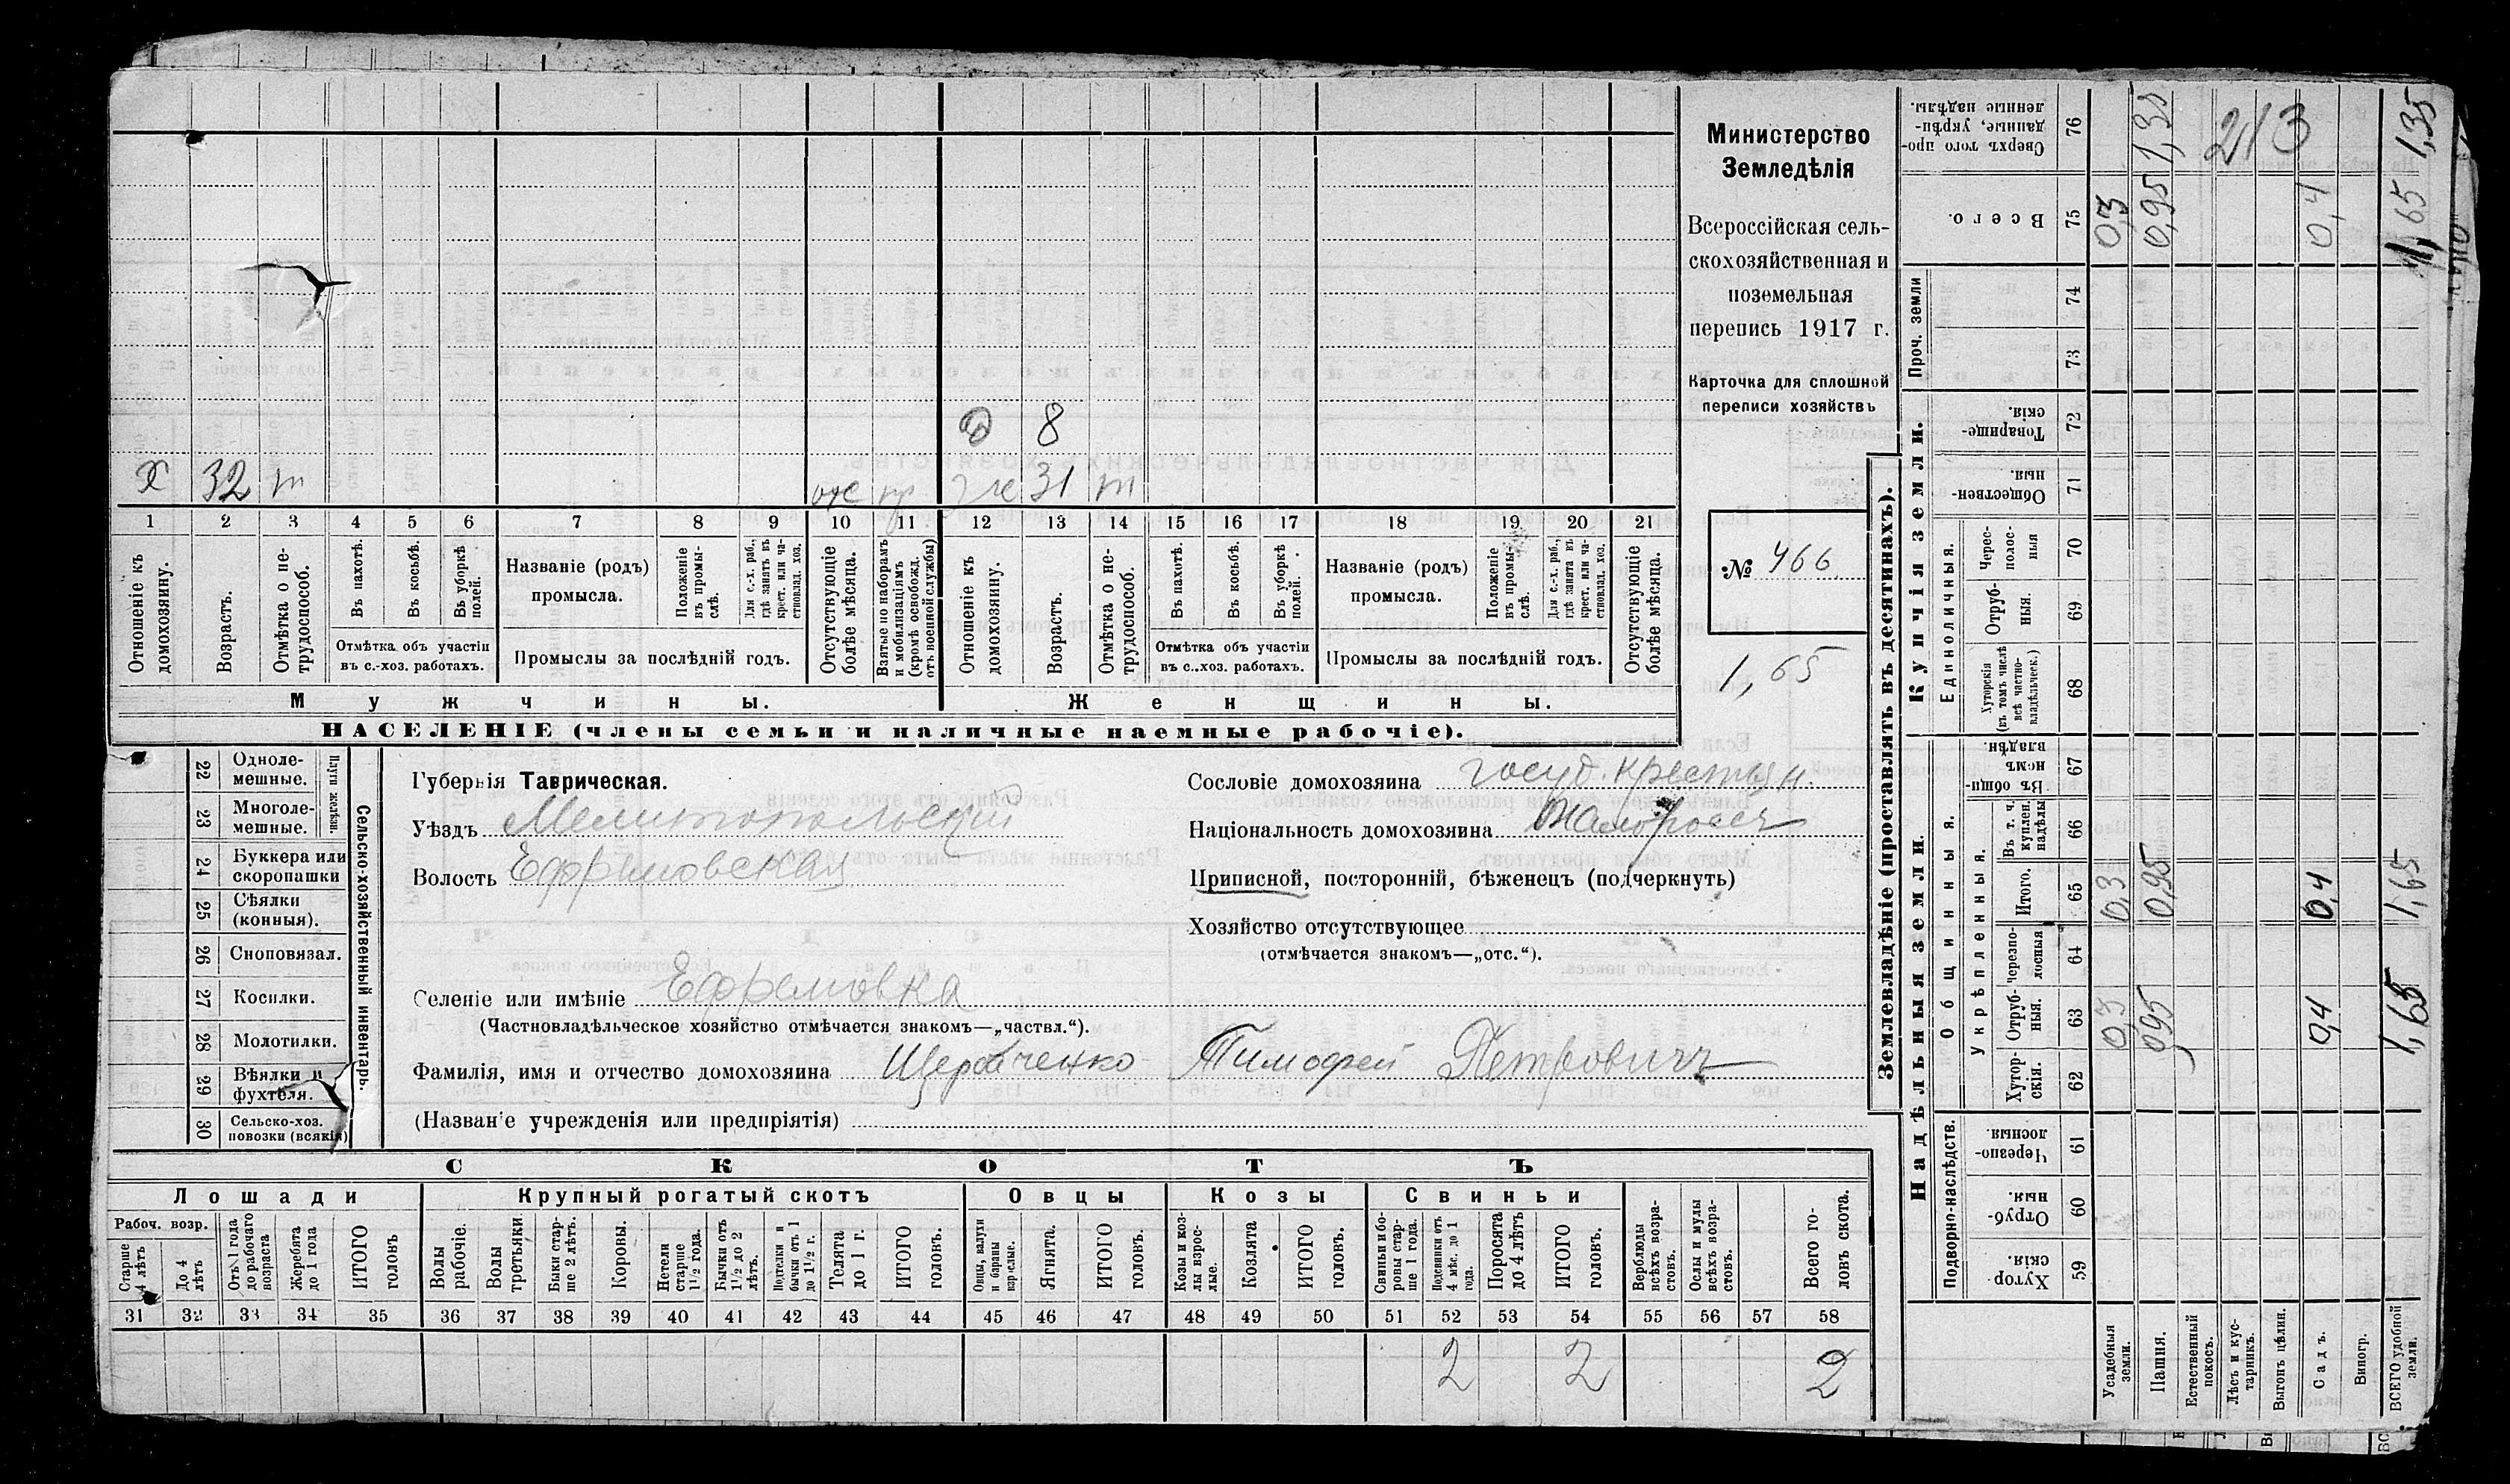 Министерство
Земледѣлія
Всероссійская сель-
скохозяйственная и
поземельная
перепись 1917 г.
Карточка для сплошной
переписи хозяйствъ
№ 466
1,65
д 8
х 32 т отс пр ж 31 т
1 2 3 4 5 6 7 8 9 10 11 12 13 14 15 16 17 18 19 20 21
Отношеніе къ домохозяину.
Возрастъ.
Отмѣтка о не-трудоспособ.
Въ пахотѣ.
Въ косьбѣ.
Въ уборкѣ полей.
Отмѣтка объ участіи
въ с.-хоз. работахъ.
Названіе (родъ)
промысла.
Положеніе въ промы-слѣ.
Для с.-х. раб., гдѣ занятъ въ крест. или ча-ствовлад. хоз.
Промыслы за послѣдній годъ.
Отсутствующіе болѣе мѣсяца.
Взятые по наборамъ и мобилизаціямъ (кромѣ освобожд. отъ военной службы)
Отношеніе къ домохозяину.
Возрастъ.
Отмѣтка о не-трудоспособ.
Въ пахотѣ.
Въ косьбѣ.
Въ уборкѣ полей.
Отмѣтка объ участіи
въ с.-хоз. работахъ.
Названіе (родъ)
промысла.
Положеніе въ промы-слѣ.
Для с.-х. раб., гдѣ занята въ крест. или ча-ствовлад. хоз.
Промыслы за послѣдній годъ.
Отсутствующіе болѣе мѣсяца.
Мужчины.
Женщины.
НАСЕЛЕНІЕ (члены семьи и наличные наемные рабочіе).
Сельско-хозяйственный инвентарь
Плуги желѣзн.
22 Одноле-мешные.
23 Многоле-мешные.
24 Буккера или скоропашки
25 Сѣялки (конныя).
26 Сноповязал.
27 Косилки.
28 Молотилки.
29 Вѣялки и фухтеля.
30 Сельско-хоз. повозки (всякія)
Губернія Таврическая.
Уѣздъ Мелитопольскій
Волость Ефремовская
Сословіе домохозяина госуд. крестьян.
Національность домохозяина Малороссъ
Приписной, посторонній, бѣженецъ (подчеркнуть)
Хозяйство отсутствующее
(отмѣчается знакомъ—„отс.“).
Селеніе или имѣніе Ефремовка
(Частновладѣльческое хозяйство отмѣчается знакомъ—„частвл.“).
Фамилія, имя и отчество домохозяина Щербаченко Тимофей Петровичъ
(Названіе учрежденія или предпріятія)
СКОТЪ
Лошади
Крупный рогатый скотъ
Овцы
Козы
Свиньи
Рабоч. возр.
Старше 4 лѣтъ
До 4 лѣтъ
Отъ 1 года до рабочаго возраста
Жеребята до 1 года
ИТОГО головъ
Волы рабочіе.
Волы третьяки
Быки стар-ше 2 лѣтъ.
Коровы.
Нетели старше 1 1/2 года.
Бычки отъ 1 1/2 до 2 лѣтъ.
Подтелки и бычки отъ 1 до 1 1/2 г.
Телята до 1 г.
ИТОГО головъ.
Овцы, валухи и бараны взрослые.
Ягнята.
ИТОГО головъ.
Козы и коз-лы взрос-лые.
Козлята
ИТОГО головъ.
Свиньи и бо-ровы стар-ше 1 года.
Подсвинки отъ 4 мѣс. до 1 года.
Поросята до 4 лѣтъ
ИТОГО головъ.
Верблюды всѣхъ возра-стовъ.
Ослы и мулы всѣхъ возра-стовъ.
Всего го-ловъ скота.
31 32 33 34 35 36 37 38 39 40 41 42 43 44 45 46 47 48 49 50 51 52 53 54 55 56 57 58
2 2 2
Землевладѣніе (проставлять въ десятинахъ).
Надѣльныя земли.
Купчія земли.
Проч. земли
Подворно-наслѣдств.
Общинныя.
Укрѣпленныя.
Единоличныя.
Хутор-скія. 59
Отруб-ныя. 60
Черезпо-лосныя. 61
Хутор-скія. 62
Отруб-ныя. 63
Черезпо-лосныя 64
Итого. 65
Въ т. ч. куплен. надѣлы 66
Въ общин-номъ владѣн. 67
Хуторскія (въ томъ числѣ всѣ частно-владѣльческ.) 68
Отруб-ныя. 69
Черес-полос-ныя 70
Обществен-ныя 71
Товарище-скія. 72
73
74
Всего. 75
Сверхъ того про-данные, укрѣп-ленные надѣлы. 76
Усадебныя земли. 0,3 0,3 0,3
Пашня. 0,95 0,95 0,95 1,35
Естественный покосъ.
Лѣсъ и кус-тарникъ.
Выгонъ цѣлин.
Садъ. 0,4 0,4 0,4
Виногр.
ВСЕГО удобной земли. 1,65 1,65 1,65 1,35
213